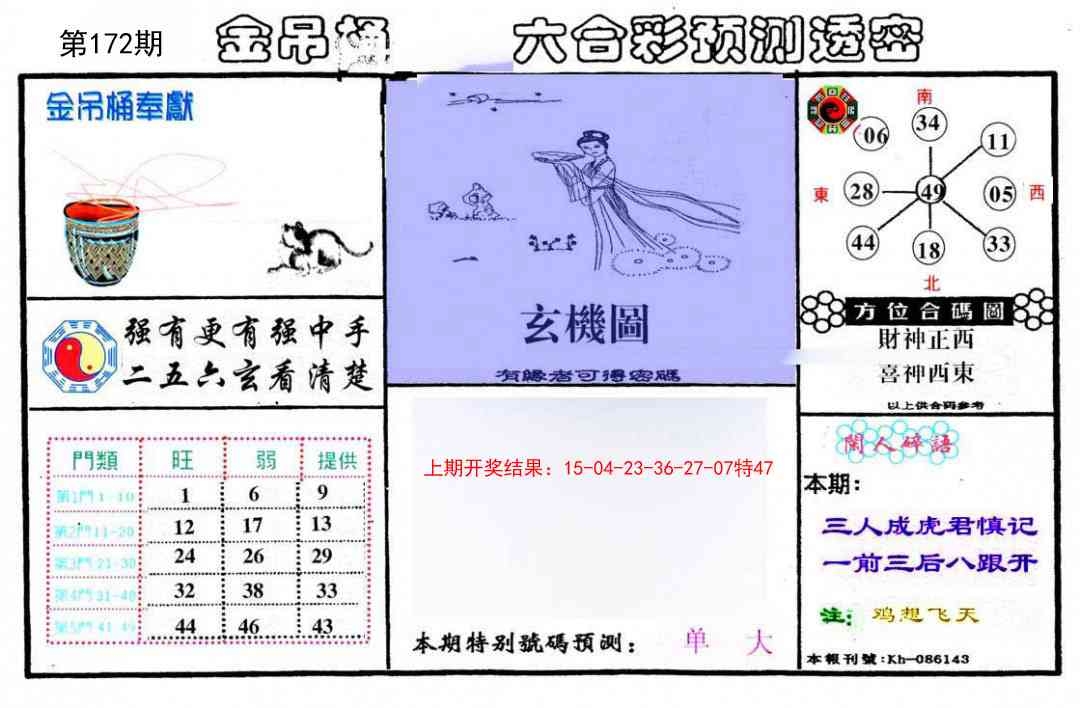 第172期
金吊桶
六合彩预测透密
金吊桶奉獻
强有更有强中手
二五六玄看清楚
門類 旺 弱 提供
第1門1-10 1 6 9
第2門11-20 12 17 13
第3門21-30 24 26 29
第4門31-40 32 38 33
第5門41-49 44 46 43
玄機圖
有緣者可得密碼
上期开奖结果：15-04-23-36-27-07特47
本期特别號碼預测： 单 大
南
06 34 11
東 28 49 05 西
44 18 33
北
方位合碼圖
財神正西
喜神西東
以上供合码参考
閑人碎語
本期：
三人成虎君慎记
一前三后八跟开
注：鸡想飞天
本報刊號:Kh-086143